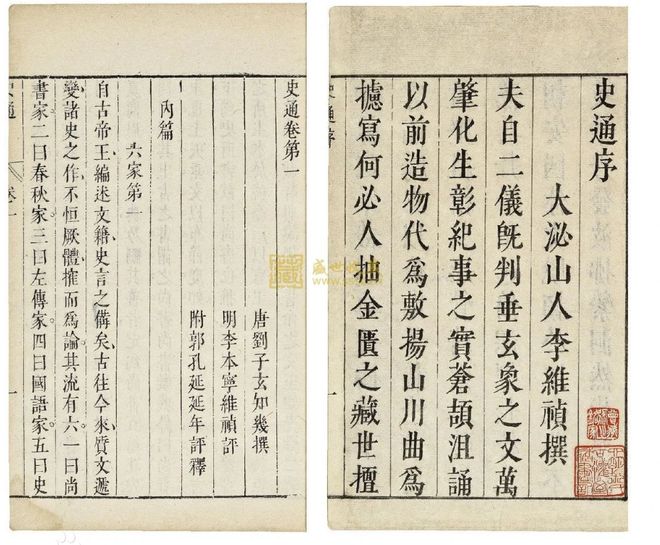 史通序
大泌山人李維禎撰
夫自二儀旣判垂玄象之文萬
肇化生彰紀事之實蒼頡沮誦
以前造物代爲敷揚山川曲爲
攄寫何必人抽金匱之藏世擅
史通序
史通卷第一
唐劉子玄知幾撰
明李本寧維禎評
附郭孔延延年評釋
內篇
六家第一
自古帝王編述文籍史言之備矣古往今來質文遞
變諸史之作不恒厥體搉而爲論其流有六一曰尚
書家二曰春秋家三曰左傳家四曰國語家五曰史
史通
卷一
一